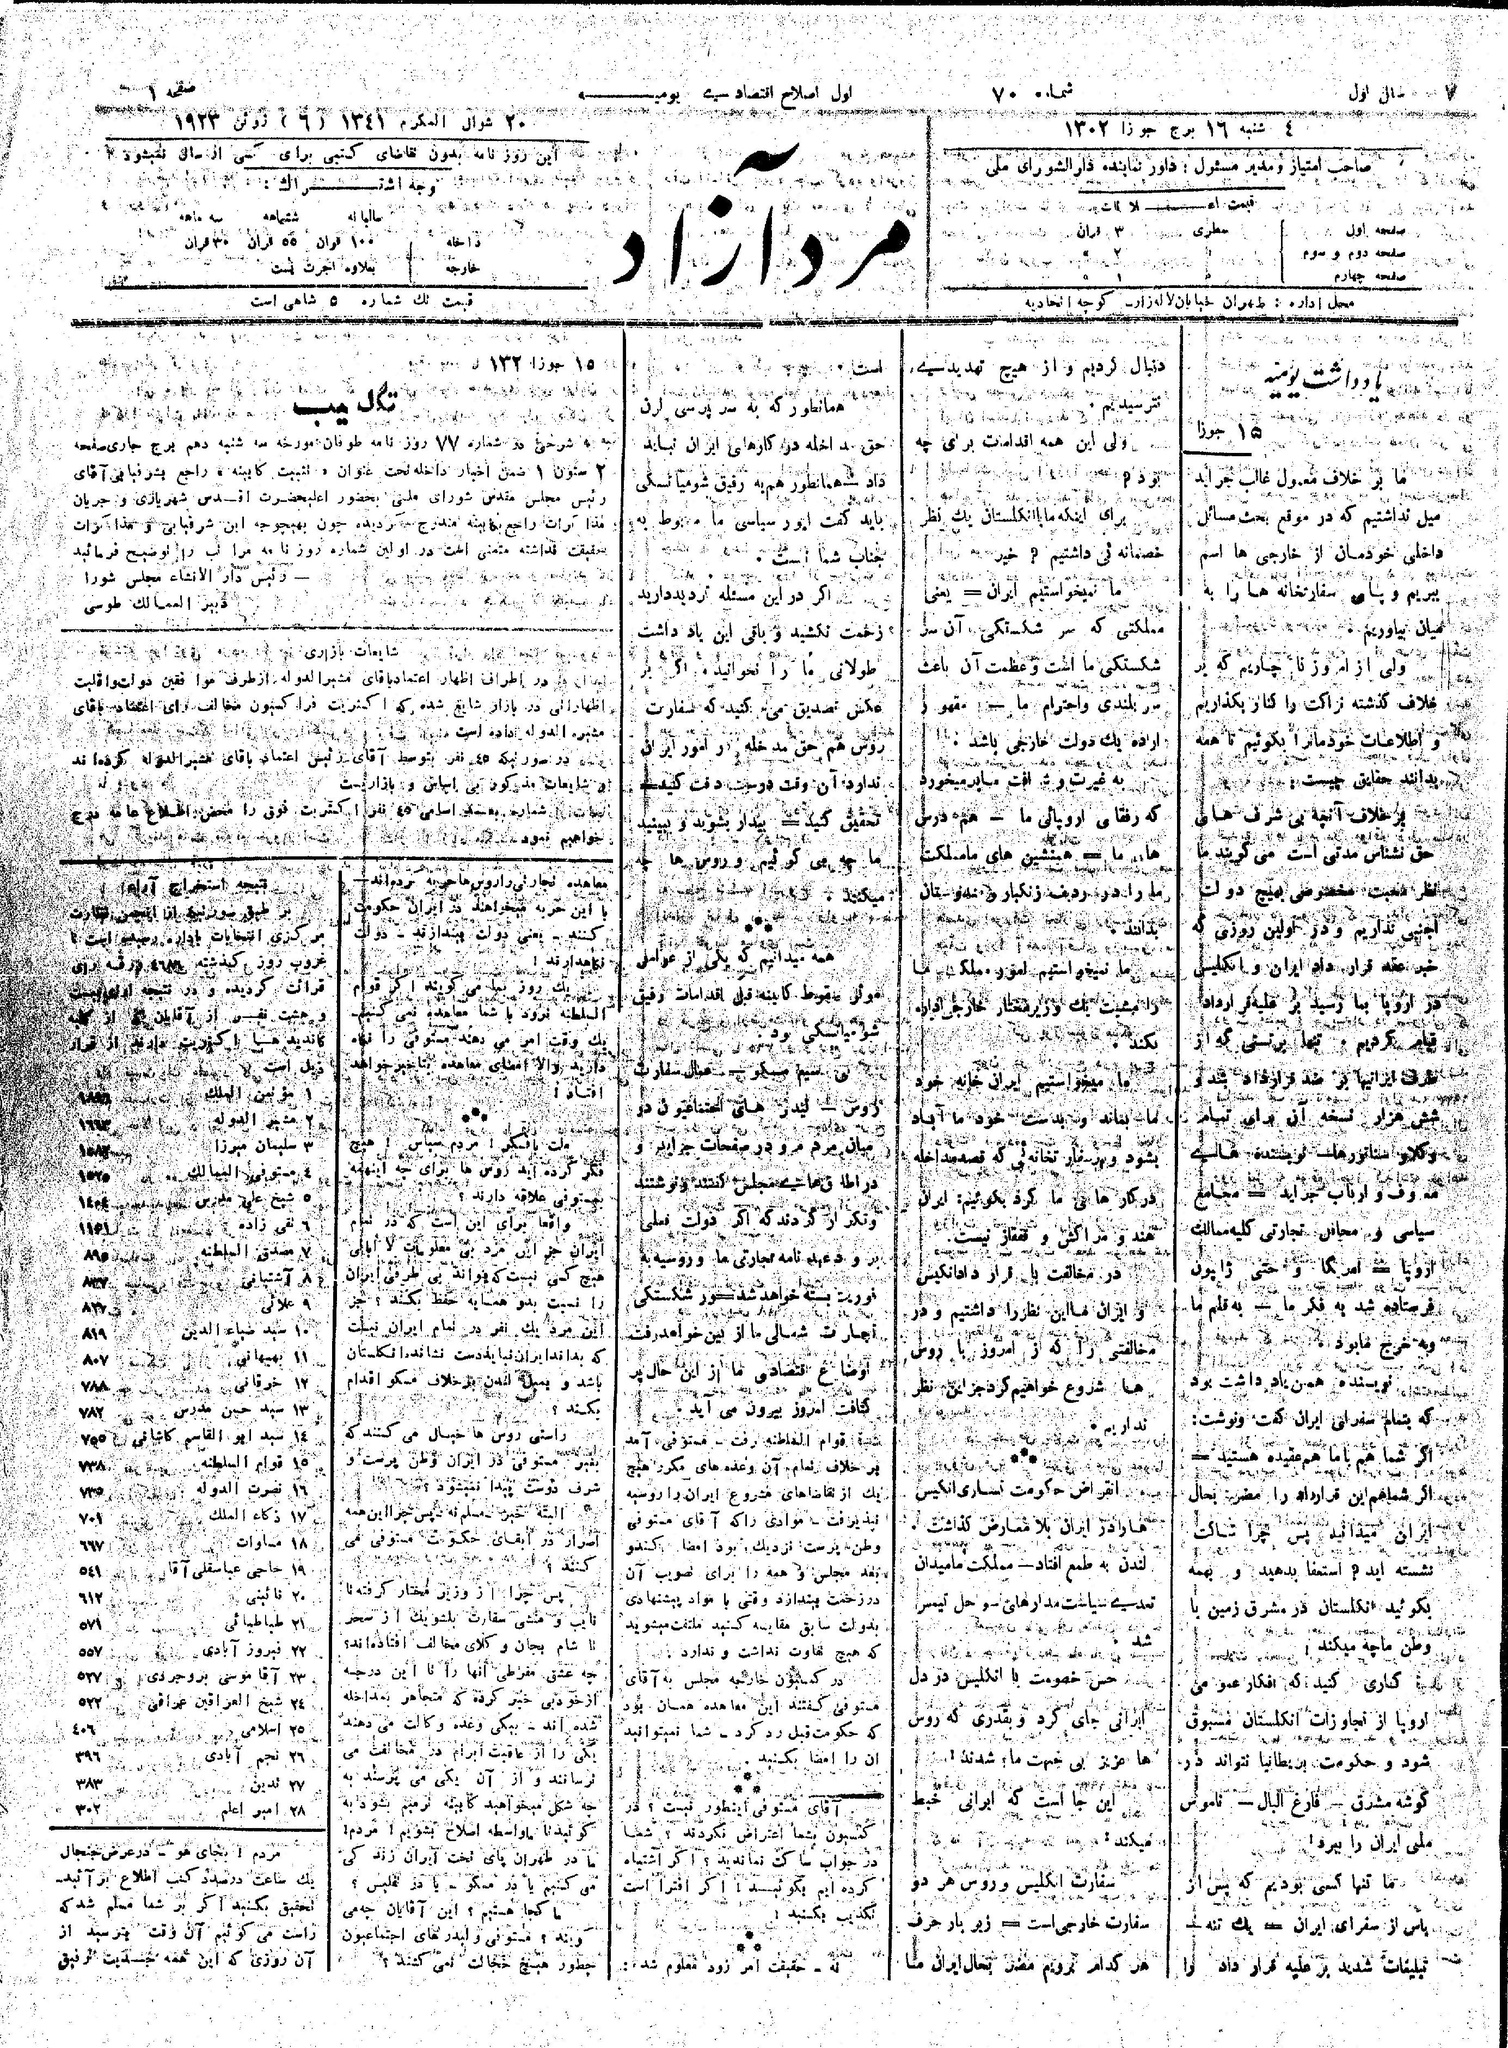 سال اول
شماره ۷۰
اول اصلاح اقتصادی یومیه
صفحه ۱
۴ شنبه ۱۶ برج جوزا ۱۳۰۲
صاحب امتیاز و مدیر مسئول : داور نماینده دارالشورای ملی
قیمت اعلانات
صفحه اول سطری ۳ قران
صفحه دوم و سوم ۲
صفحه چهارم ۱
محل اداره : طهران خیابان لاله‌زار کوچه اتحادیه
مرد آزاد
۲۰ شوال المکرم ۱۳۴۱ (۶) ژوئن ۱۹۲۳
این روز نامه بدون تقاضای کتبی برای کسی ارسال نمیشود
وجه اشتراک :
سالیانه ششماهه سه ماهه
داخله ۱۰۰ قران ۵۵ قران ۳۰ قران
خارجه بعلاوه اجرت پست
قیمت تک شماره ۵ شاهی است
یادداشت یومیه
۱۵ جوزا
ما بر خلاف معمول غالب جراید
میل نداشتیم که در موقع بحث مسائل
داخلی خودمان از خارجی ها اسم
ببریم و پای سفارتخانه ها را به
میان بیاوریم .
ولی از امروز ناچاریم که بر
خلاف گذشته نزاکت را کنار بگذاریم
و اطلاعات خودمانرا بگوئیم تا همه
بدانند حقایق چیست :
بر خلاف آنچه بی شرف های
حق نشناس مدتی است می گویند ما
نظر محبت مخصوصی بهیچ دولت
اجنبی نداریم و در اولین روزی که
خبر عقد قرار داد ایران و انگلیس
در اروپا بما رسید بر علیه قرارداد
قیام کردیم . تنها پرتستی که از
طرف ایرانیها بر ضد قرارداد شد و
شش هزار نسخه آن برای تمام
وکلا و سناتورها ـ نویسنده های
معروف و ارباب جراید = مجامع
سیاسی و محافل تجارتی کلیه ممالک
اروپا = امریکا و حتی ژاپون
فرستاده شد به فکر ما — به قلم ما
و به خرج ما بود .
نویسنده همین یاد داشت بود
که بتمام سفرای ایران گفت و نوشت :
اگر شما هم با ما هم عقیده هستید =
اگر شما هم این قرارداد را مضر بحال
ایران میدانید پس چرا ساکت
نشسته اید ؟ استعفا بدهید و بهمه
بگوئید انگلستان در مشرق زمین با
وطن ما چه میکند !
کاری کنید که افکار عمومی
اروپا از تجاوزات انگلستان مسبوق
شود و حکومت بریطانیا نتواند در
گوشه مشرق — فارغ البال — ناموس
ملی ایران را ببرد !
ما تنها کسی بودیم که پس از
یاس از سفرای ایران = یک تنه -
تبلیغات شدید بر علیه قرار داد را
دنبال کردیم و از هیچ تهدیدی
نترسیدیم .
ولی این همه اقدامات برای چه
بود ؟
برای اینکه ما با انگلستان یک نظر
خصمانه ئی داشتیم ؟ خیر
ما نمیخواستیم ایران = یعنی
مملکتی که سر شکستگی آن سر
شکستگی ما است و عظمت آن باعث
سر بلندی و احترام ما — مقهور
اراده یک دولت خارجی باشد .
به غیرت و شرافت ما بر میخورد
که رفقای اروپائی ما — هم درس
های ما = همنشین های ما مملکت
ما را در ردیف زنگبار و هندوستان
بدانند .
ما نمیخواستیم امور مملکت ما
را بمشیت یک وزیر مختار خارجی اداره
بکند .
ما میخواستیم ایران خانه خود
ما بماند و بدست خود ما آباد
بشود و هر سفارتخانه ئی که قصد مداخله
در کار های ما کرد بگوئیم : ایران
هند و مراکش و قفقاز نیست .
در مخالفت با قرار داد انگلیس
و ایران ما این نظر را داشتیم و در
مخالفتی را که از امروز با روس
ها شروع خواهیم کرد جز این نظر
نداریم .
انقراض حکومت تساری انگلیس
ها را در ایران بلا معارض گذاشت .
لندن به طمع افتاد — مملکت ما میدان
شد .
حس خصومت با انگلیس در دل
ایرانی جای کرد و بقدری که روس
ها عزیز بی جهت ما شدند !
این جا است که ایرانی خبط
میکند !
سفارت انگلیس و روس هر دو
سفارت خارجی است = زیر بار حرف
هر کدام برویم مضر بحال ایران ما
است .
همانطور که به سر پرسی لرن
حق مداخله در کارهای ایران نباید
داد — همانطور هم به رفیق شومیاتسکی
باید گفت امور سیاسی ما مربوط به
جناب شما است .
اگر در این مسئله تردید دارید
زحمت نکشید و باقی این یاد داشت
طولانی ما را نخوانید . اگر بر
عکس تصدیق می کنید که سفارت
روس هم حق مداخله در امور ایران
ندارد آن وقت درست دقت کنید =
تحقیق کنید = بیدار بشوید و ببینید
ما چه می گوئیم و روس ها چه
میکنند .
همه میدانیم که یکی از عوامل
موثر سقوط کابینه قبل اقدامات رفیق
شومیاتسکی بود
بی سیم مسکو — عمال سفارت
روس — لیدر های اجتماعیون در
میان مردم مرو در صفحات جراید و
گفتند و نوشتند
و تکرار کردند که اگر دولت فعلی
برود عهد نامه تجارتی ما و روسیه به
فوریت بسته خواهد شد
تجارت شمالی ما از بین خواهد رفت
اوضاع اقتصادی ما از این حال پر
کثافت امروز بیرون می آید .
قوام السلطنه رفت — مستوفی آمد
بر خلاف تمام آن وعده های مکرر هیچ
یک از تقاضاهای مشروع ایران را روسیه
نپذیرفت — موادی را که آقای مستوفی
وطن پرست نزدیک بود امضا بکند و
بعد مجلس و همه را برای تصویب آن
در زحمت بیندازد وقتی با مواد پیشنهادی
بدولت سابق مقایسه کنید ملتفت میشوید
که هیچ تفاوت نداشت و ندارد :
در کمسیون خارجه مجلس به آقای
مستوفی گفتند این معاهده همان بود
که حکومت قبل رد کرد — شما نمیتوانید
آن را امضا بکنید .
آقای مستوفی اینطور نیست ؟ در
کمسیون بشما اعتراض نکردند ؟ شما
در جواب ساکت نماندید ؟ اگر اشتباه
کرده ایم بگوئید ! اگر افترا است
تکذیب بکنید !
نه - حقیقت امر زود معلوم شد :
۱۵ جوزا
تکذیب
به شرحی در شماره ۷۷ روز نامه طوفان مورخه سه شنبه دهم برج جاری صفحه
۲ ستون ۱ ضمن اخبار داخله تحت عنوان « تثبیت کابینه » راجع بشرفیابی آقای
رئیس مجلس مقدس شورای ملی بحضور اعلیحضرت اقدس شهریاری و جریان
مذاکرات راجع بکابینه مندرج گردیده چون بهیچوجه این شرفیابی و مذاکرات
حقیقت نداشته متمنی است در اولین شماره روز نامه مراتب را توضیح فرمائید
— رئیس دار الانشاء مجلس شورا
دبیر الممالک طوسی
شایعات بازاری
در اطراف اظهار اعتماد بآقای مشیرالدوله از طرف موافقین دولت و اقلیت
اظهاراتی در بازار شایع شده که اکثریت فراکسیون مخالف رای اعتماد بآقای
مشیرالدوله داده است
در صورتیکه ۴۵ نفر بتوسط آقای رئیس اعتماد بآقای مشیرالدوله کرده‌اند
و شایعات مذکور بی اساس و بازاریست
شماره بعد اسامی ۴۵ نفر اکثریت فوق را محض اطلاع عامه درج
خواهیم نمود
معاهده تجارتی را روس ها حربه کرده‌اند —
با این حربه میخواهند در ایران حکومت
کنند — یعنی دولت بیندازند — دولت
نگاهدارند !
یک روز بما می گویند اگر قوام
السلطنه نرود با شما معاهده نمی کنیم
یک وقت امر می دهند مستوفی را نگاه
دارید والا امضای معاهده بتاخیر خواهد
افتاد !
ملت بافکر ! مردم سیاسی ! هیچ
فکر کرده اید روس ها برای چه اینهمه
بمستوفی علاقه دارند ؟
واقعا برای این است که در تمام
ایران جز این مرد بی معلومات لا ابالی
هیچ کس نیست که بتواند بی طرفی ایران
را نسبت بدو همسایه حفظ بکند ؟ جز
این مرد یک نفر در تمام ایران نیست
که بداند ایران نباید دست نشانده انگلستان
باشد و بمیل لندن بر خلاف مسکو اقدام
بکند ؟
راستی روس ها خیال می کنند که
بغیر مستوفی در ایران وطن پرست و
شرف دوست پیدا نمیشود ؟
البته خیر — مسلم نه — پس چرا این همه
اصرار در ابقای حکومت مستوفی می
کنند ؟
پس چرا از وزیر مختار گرفته تا
نایب و منشی سفارت بلشویک از سحر
تا شام بجان وکلای مخالف افتاده‌اند ؟
چه عشق مفرطی آنها را تا این درجه
از خود بی خبر کرده که متجاهر بمداخله
شده اند — بیکی وعده وکالت می دهند
یکی را از عاقبت ابرام در مخالفت می
ترسانند و از آن یکی می پرسند به
چه شکل میخواهید کابینه ترمیم بشود به
گوئید تا ما واسطه اصلاح بشویم ! مردم !
ما در طهران پای تخت ایران زندگی
می کنیم یا در مسکو — یا در تفلیس ؟
ما کجا هستیم ؟ این آقایان چه می
گویند ؟ مستوفی و لیدرهای اجتماعیون
چطور هیچ خجالت نمی کشند ؟
نتیجه استخراج آراء
بر طبق صورتیکه از انجمن نظارت
مرکزی انتخابات باداره رسیده است تا
غروب روز گذشته ۴۶۸۹ ورقه رای
قرائت گردیده و در نتیجه آرای بیست
و هشت نفر از آقایان که از کلیه
کاندیدها اکثریت دارند از قرار
ذیل است
۱ مؤتمن الملک
۲ مشیر الدوله ۱۶۹۳
۳ سلیمان میرزا ۱۵۸۲
۴ مستوفی الممالک ۱۵۲۵
۵ شیخ علی مدرس ۱۴۰۴
۶ تقی زاده ۱۱۵۱
۷ مصدق السلطنه ۸۹۵
۸ آشتیانی ۸۳۷
۹ علائی ۸۲۷
۱۰ سید ضیاء الدین ۸۱۹
۱۱ بهبهانی ۸۰۷
۱۲ خرقانی ۷۸۸
۱۳ سید حسن مدرس ۷۸۲
۱۴ سید ابو القاسم کاشانی ۷۵۵
۱۵ قوام السلطنه ۷۳۸
۱۶ نصرت الدوله ۷۳۵
۱۷ ذکاء الملک ۷۰۱
۱۸ مساوات ۶۶۷
۱۹ حاجی عباسقلی آقا ۵۴۱
۲۰ نائینی ۶۱۲
۲۱ طباطبائی ۵۷۱
۲۲ فیروز آبادی ۵۵۷
۲۳ آقا موسی بروجردی ۵۲۷
۲۴ شیخ العراقین عراقی ۵۲۲
۲۵ اسلامی ۴۰۶
۲۶ نجم آبادی ۳۹۶
۲۷ تدین ۳۸۳
۲۸ امیر اعلم ۳۰۲
مردم ! بجای هو — در عرض جنجال
یک ساعت درصدد کسب اطلاع بر آئید —
تحقیق بکنید اگر بر شما مسلم شد که
راست می گوئیم آن وقت بترسید از
آن روزی که این همه جدیت رفیق